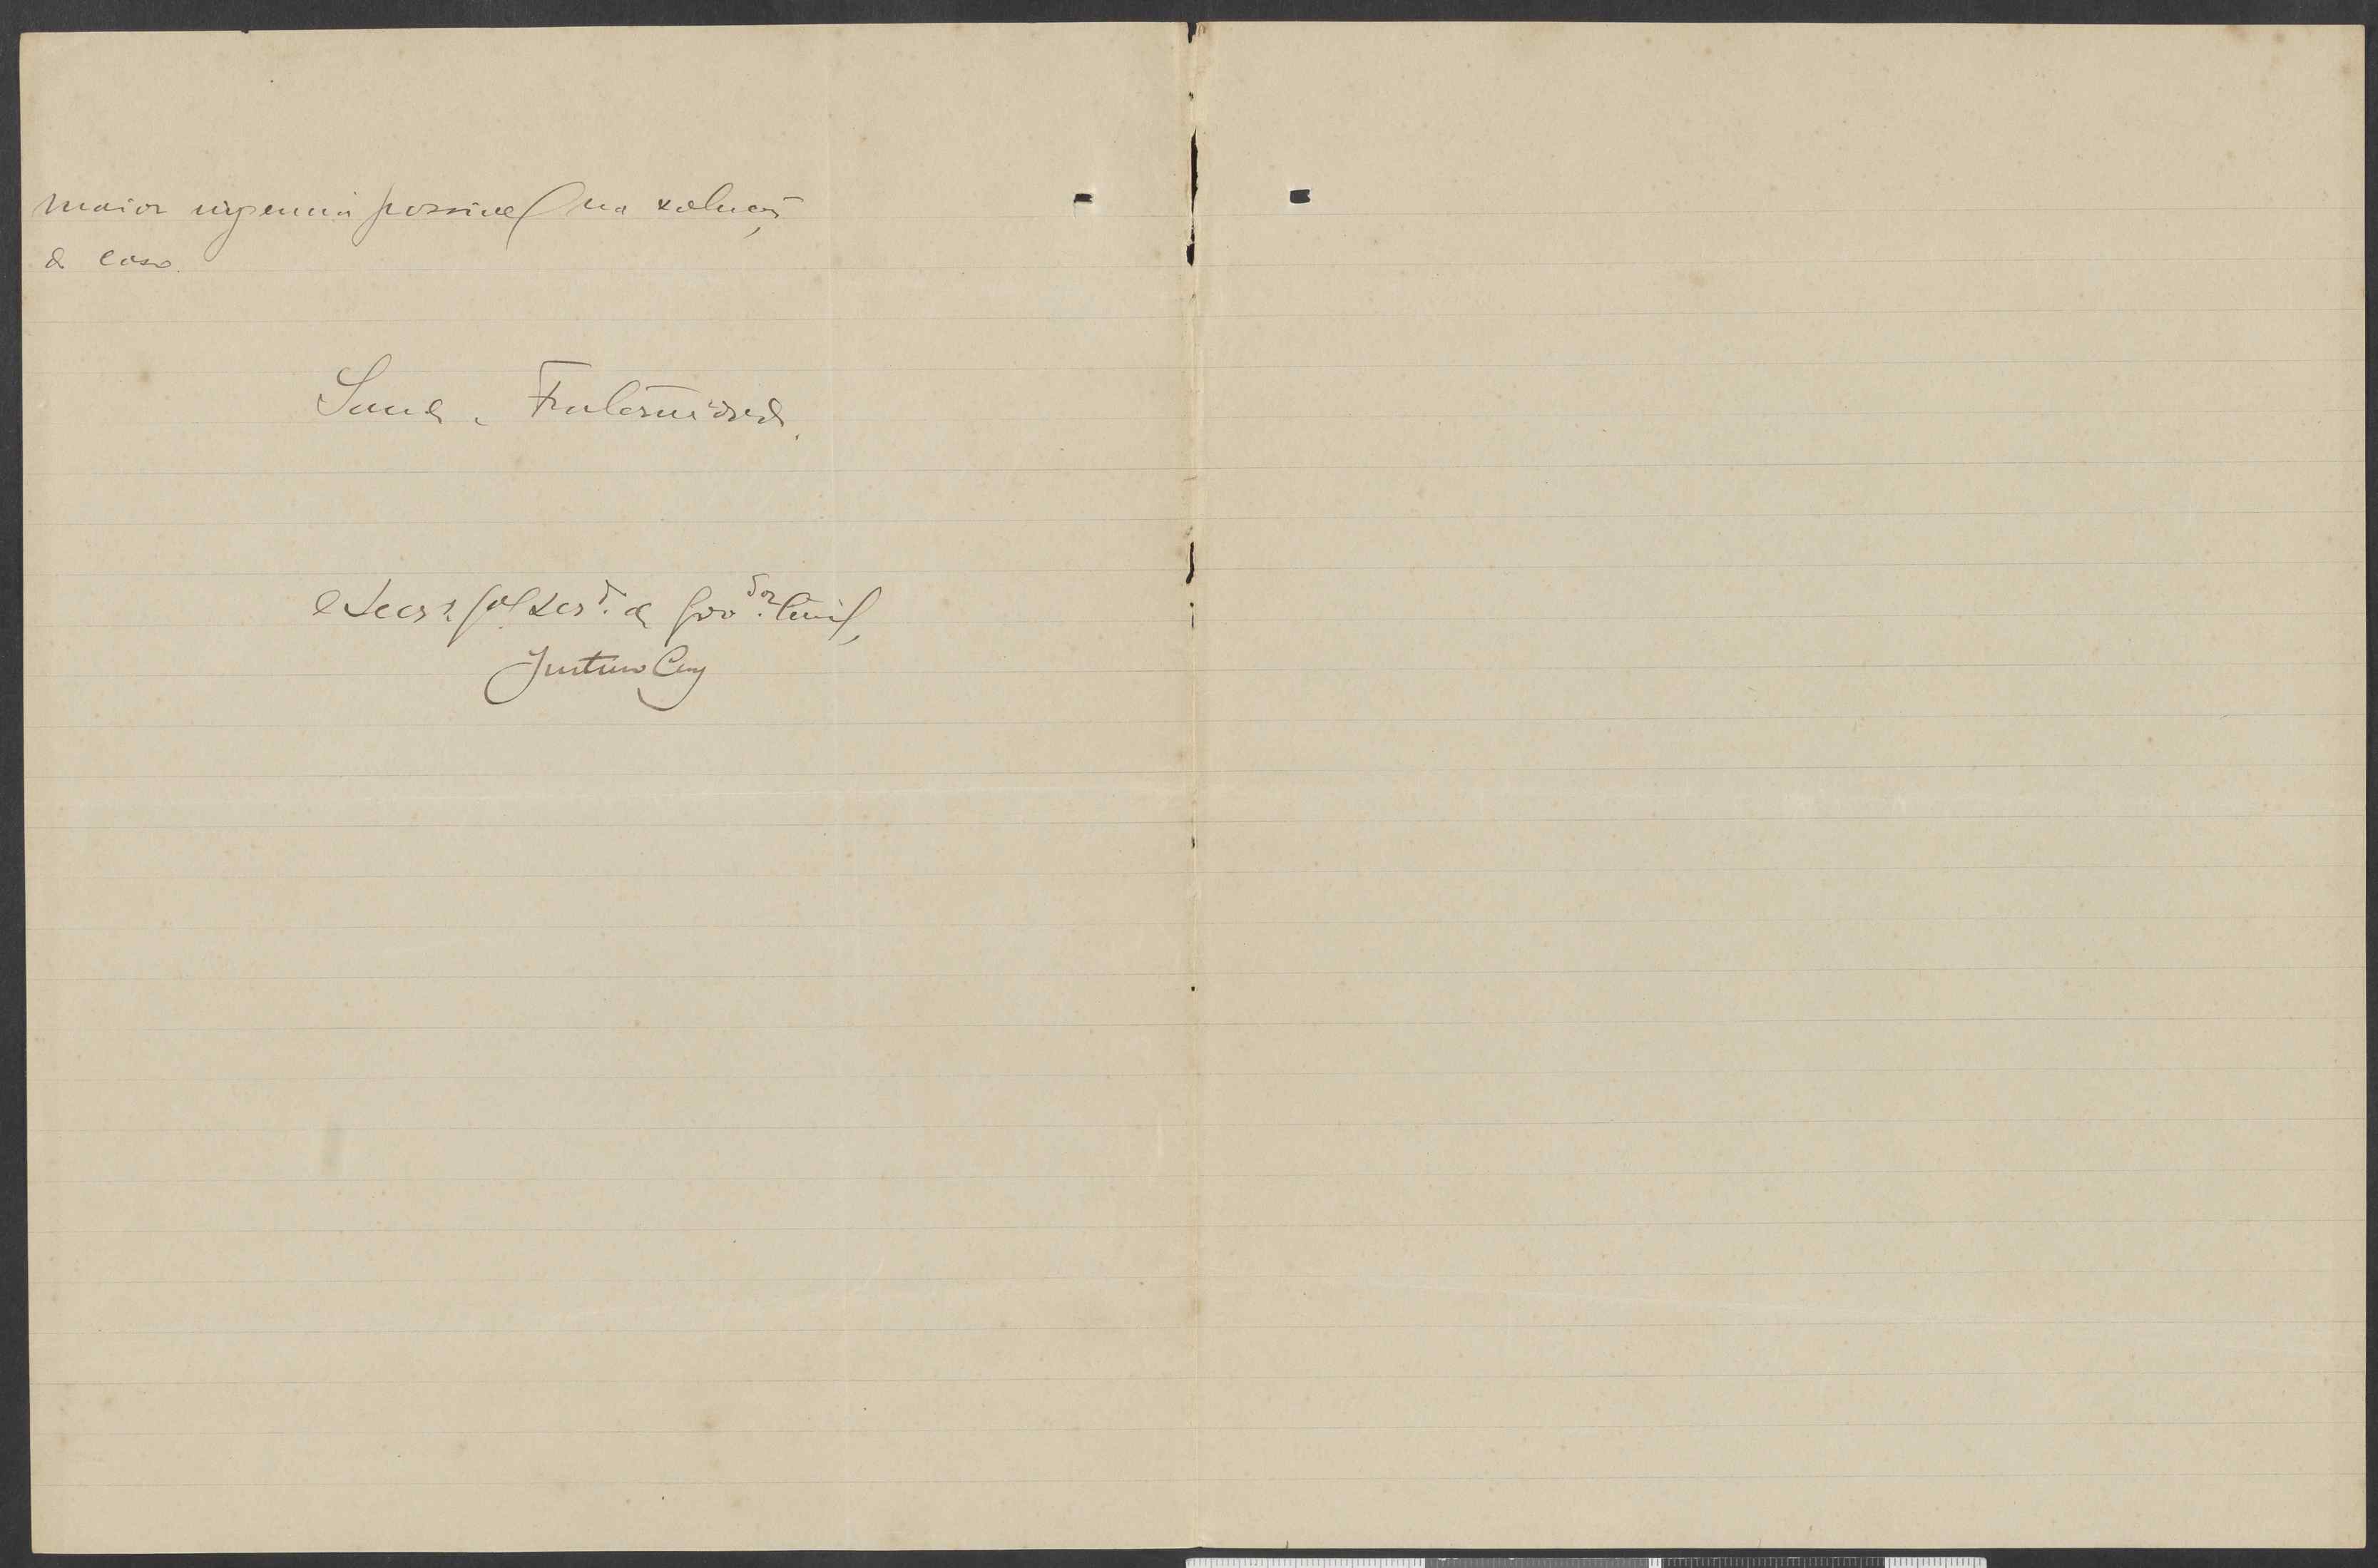 maior urgencia possivel na solução
do caso.
Saude e Fraternidade.
O Secr. Ger. do Gov.dor Civil,
Justino Cruz